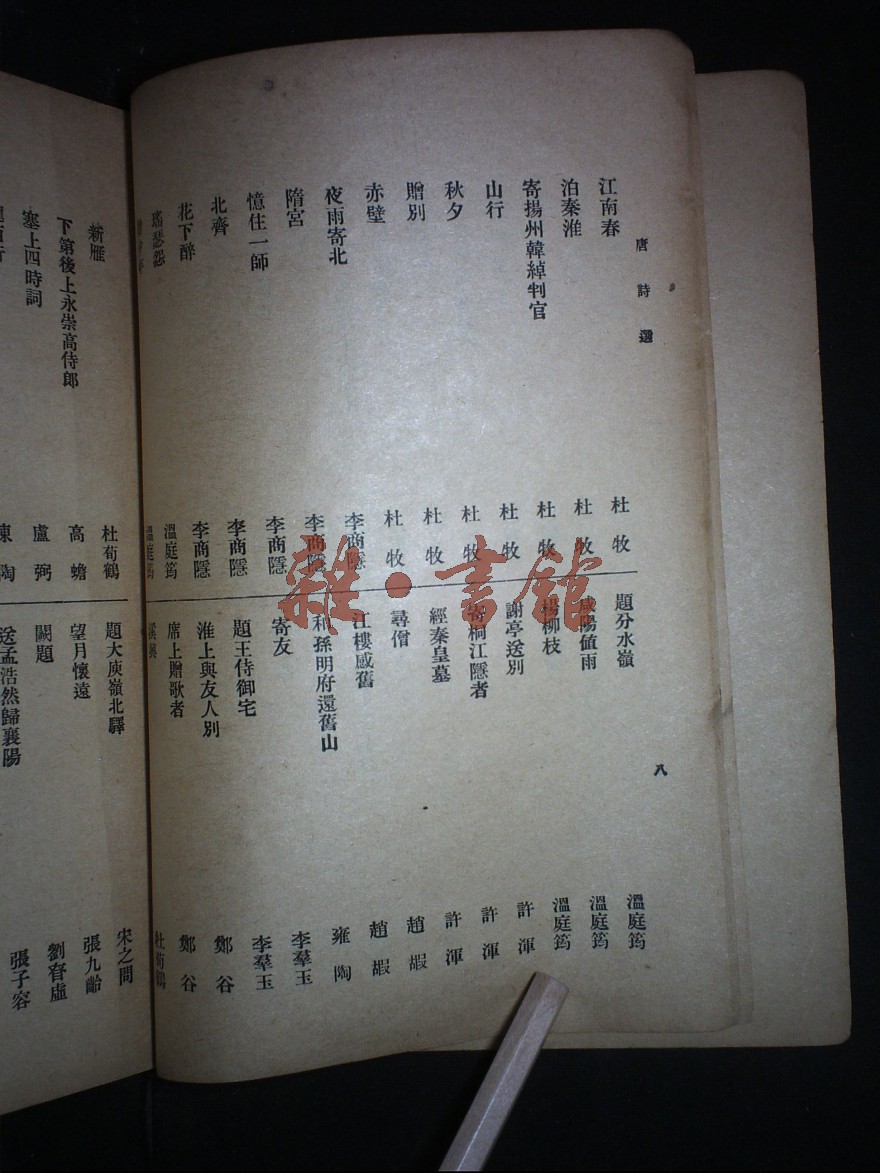 唐詩選
八
江南春 杜牧
泊秦淮 杜牧
寄揚州韓綽判官 杜牧
山行 杜牧
秋夕 杜牧
贈別 杜牧
赤壁 杜牧
夜雨寄北 李商隱
隋宮 李商隱
憶住一師 李商隱
北齊 李商隱
花下醉 李商隱
瑤瑟怨 溫庭筠
溫庭筠
題分水嶺 溫庭筠
咸陽值雨 溫庭筠
楊柳枝 溫庭筠
謝亭送別 許渾
寄桐江隱者 許渾
經秦皇墓 許渾
尋僧 趙嘏
江樓感舊 趙嘏
和孫明府還舊山 雍陶
寄友 李羣玉
題王侍御宅 李羣玉
淮上與友人別 鄭谷
席上贈歌者 鄭谷
杜荀鶴
新雁 杜荀鶴
下第後上永崇高侍郎 高蟾
塞上四時詞 盧弼
陳陶
題大庾嶺北驛 宋之問
望月懷遠 張九齡
闕題 劉昚虛
送孟浩然歸襄陽 張子容
雜·書館